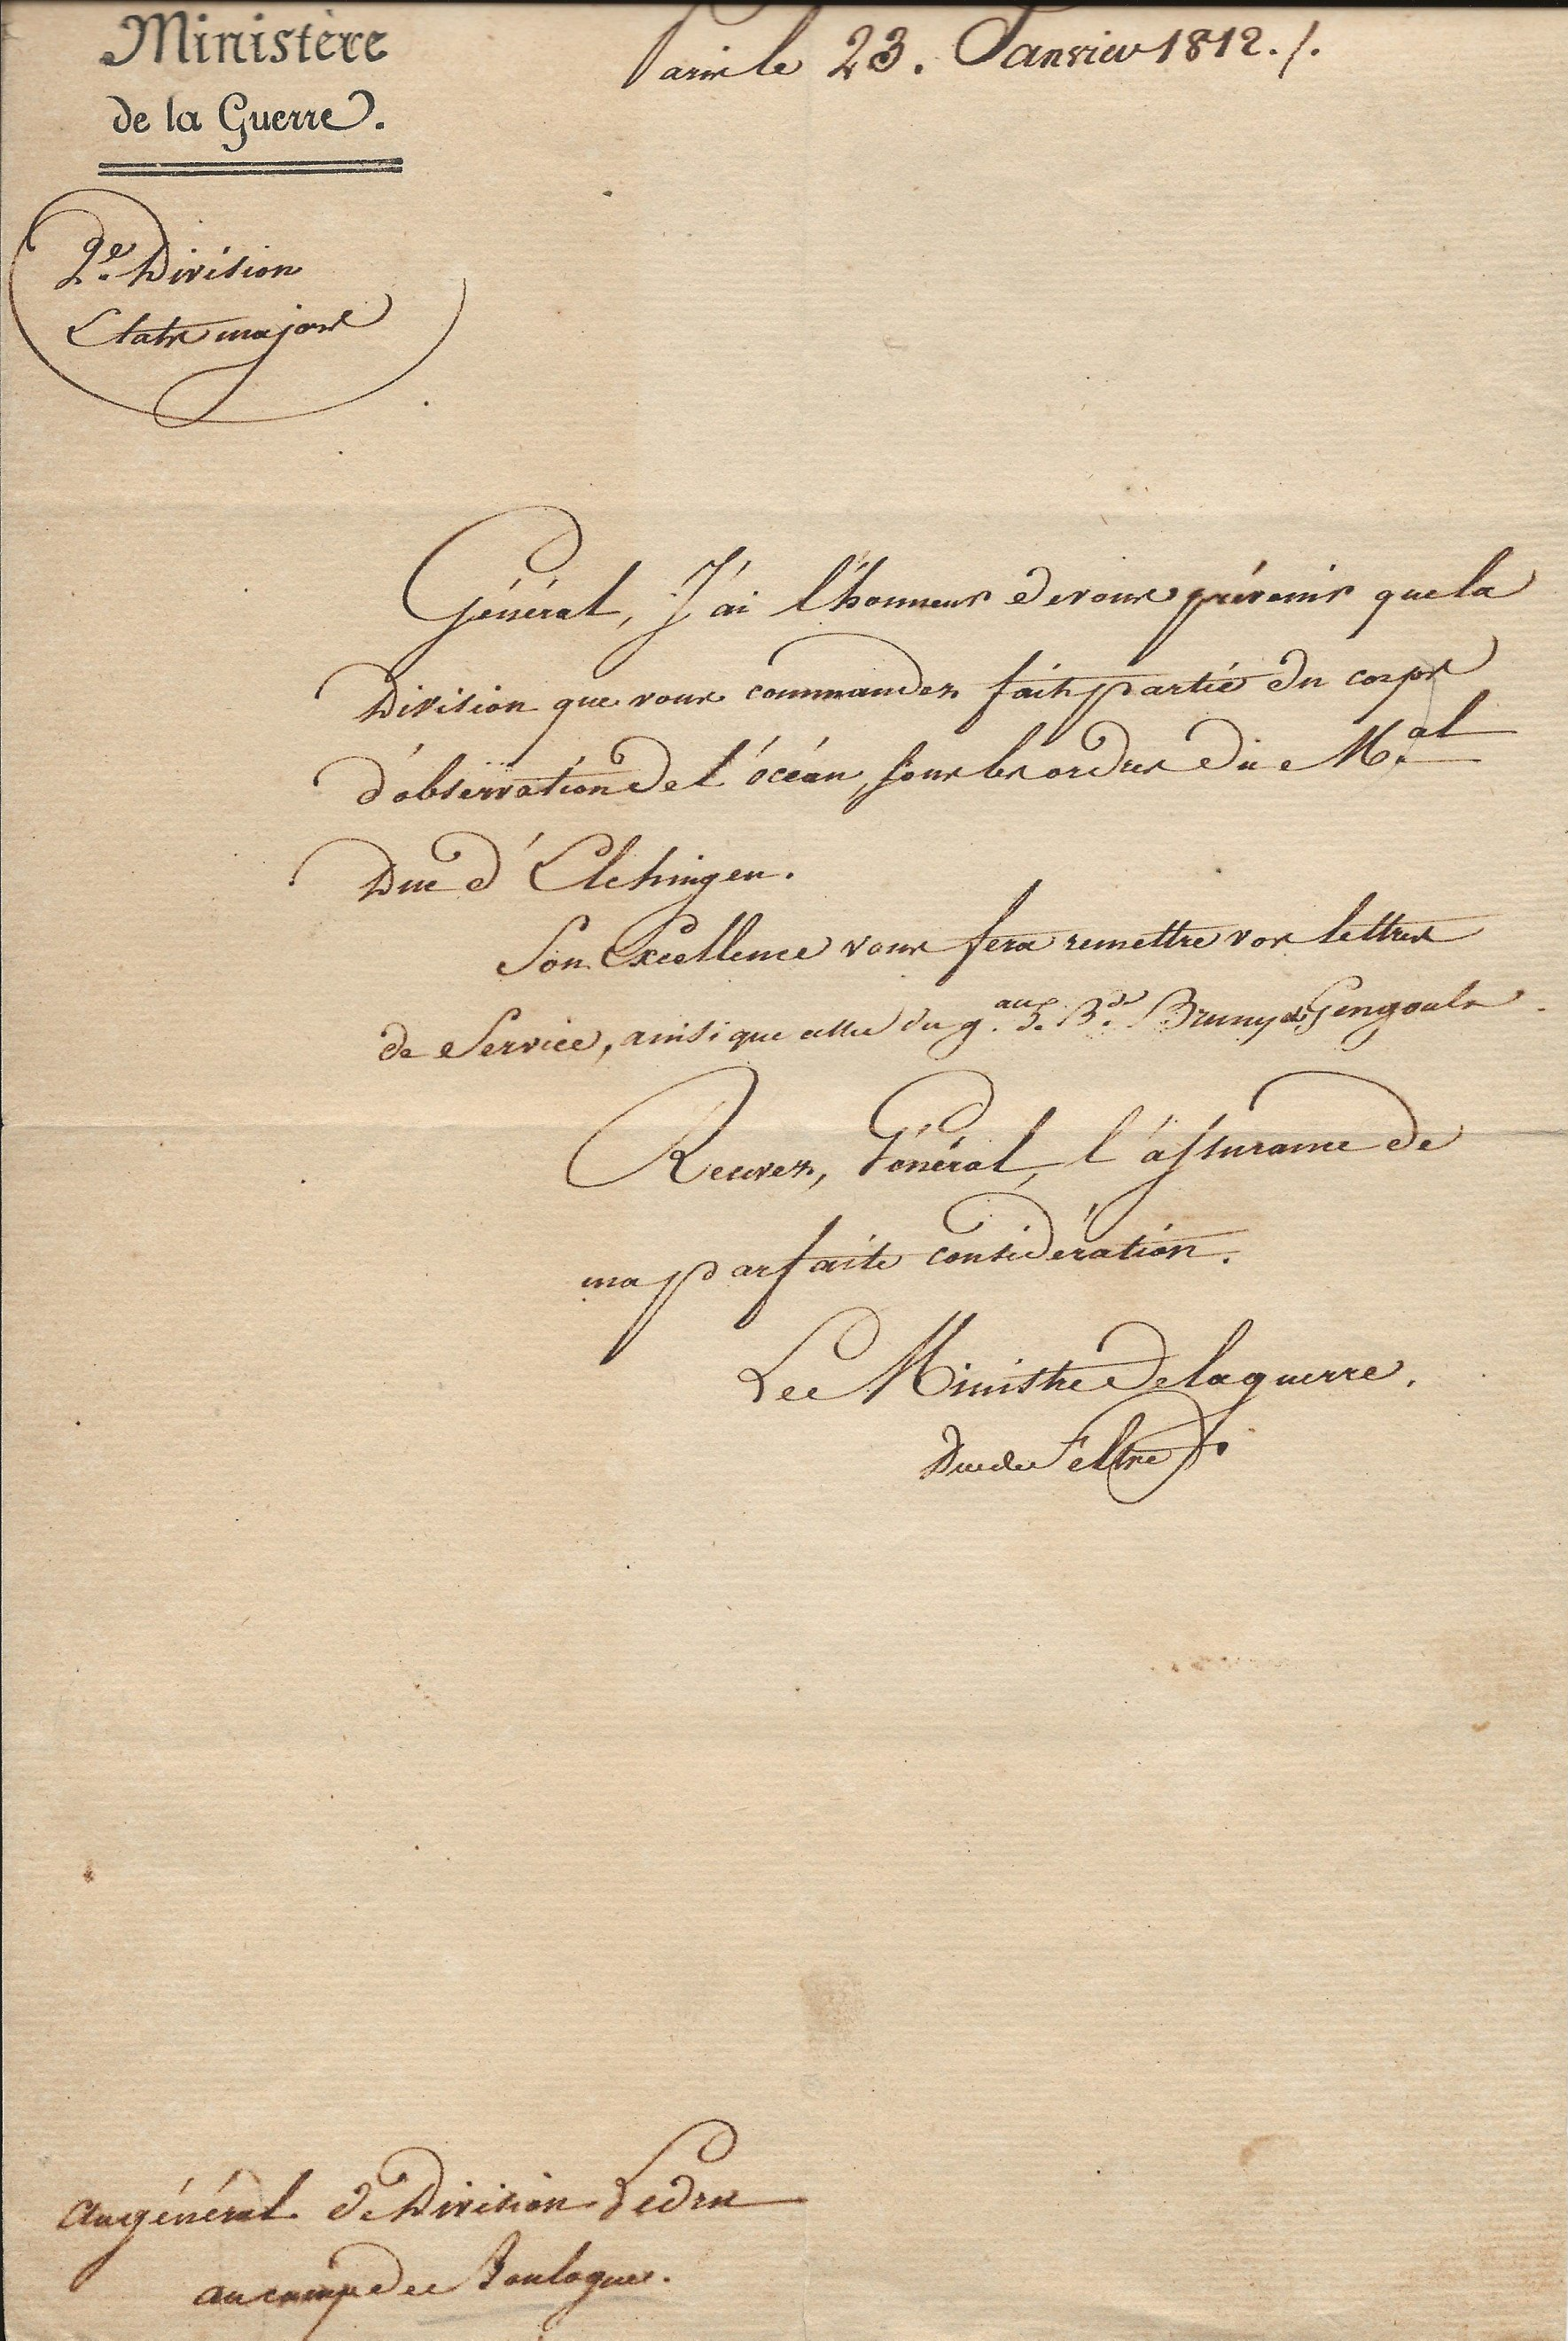 Ministère
de la Guerre.
Paris le 23. Janvier 1812./.
2e. Division
Etats majors
Général, J'ai l'honneur de vous prévenir que la
Division que vous commandez fait partie du corps
d'observation de l'océan, sous les ordres du M.al
Duc d'Elchingen.
Son Excellence vous fera remettre vos lettres
de Service, ainsi que celles du g.aux de B.de Bruny & Gengoult
Recevez, Général, l'assurance de
ma parfaite considération.
Le Ministre de la guerre.
Duc de Feltre
Au général de Division Ledru
au camp de Boulogne.